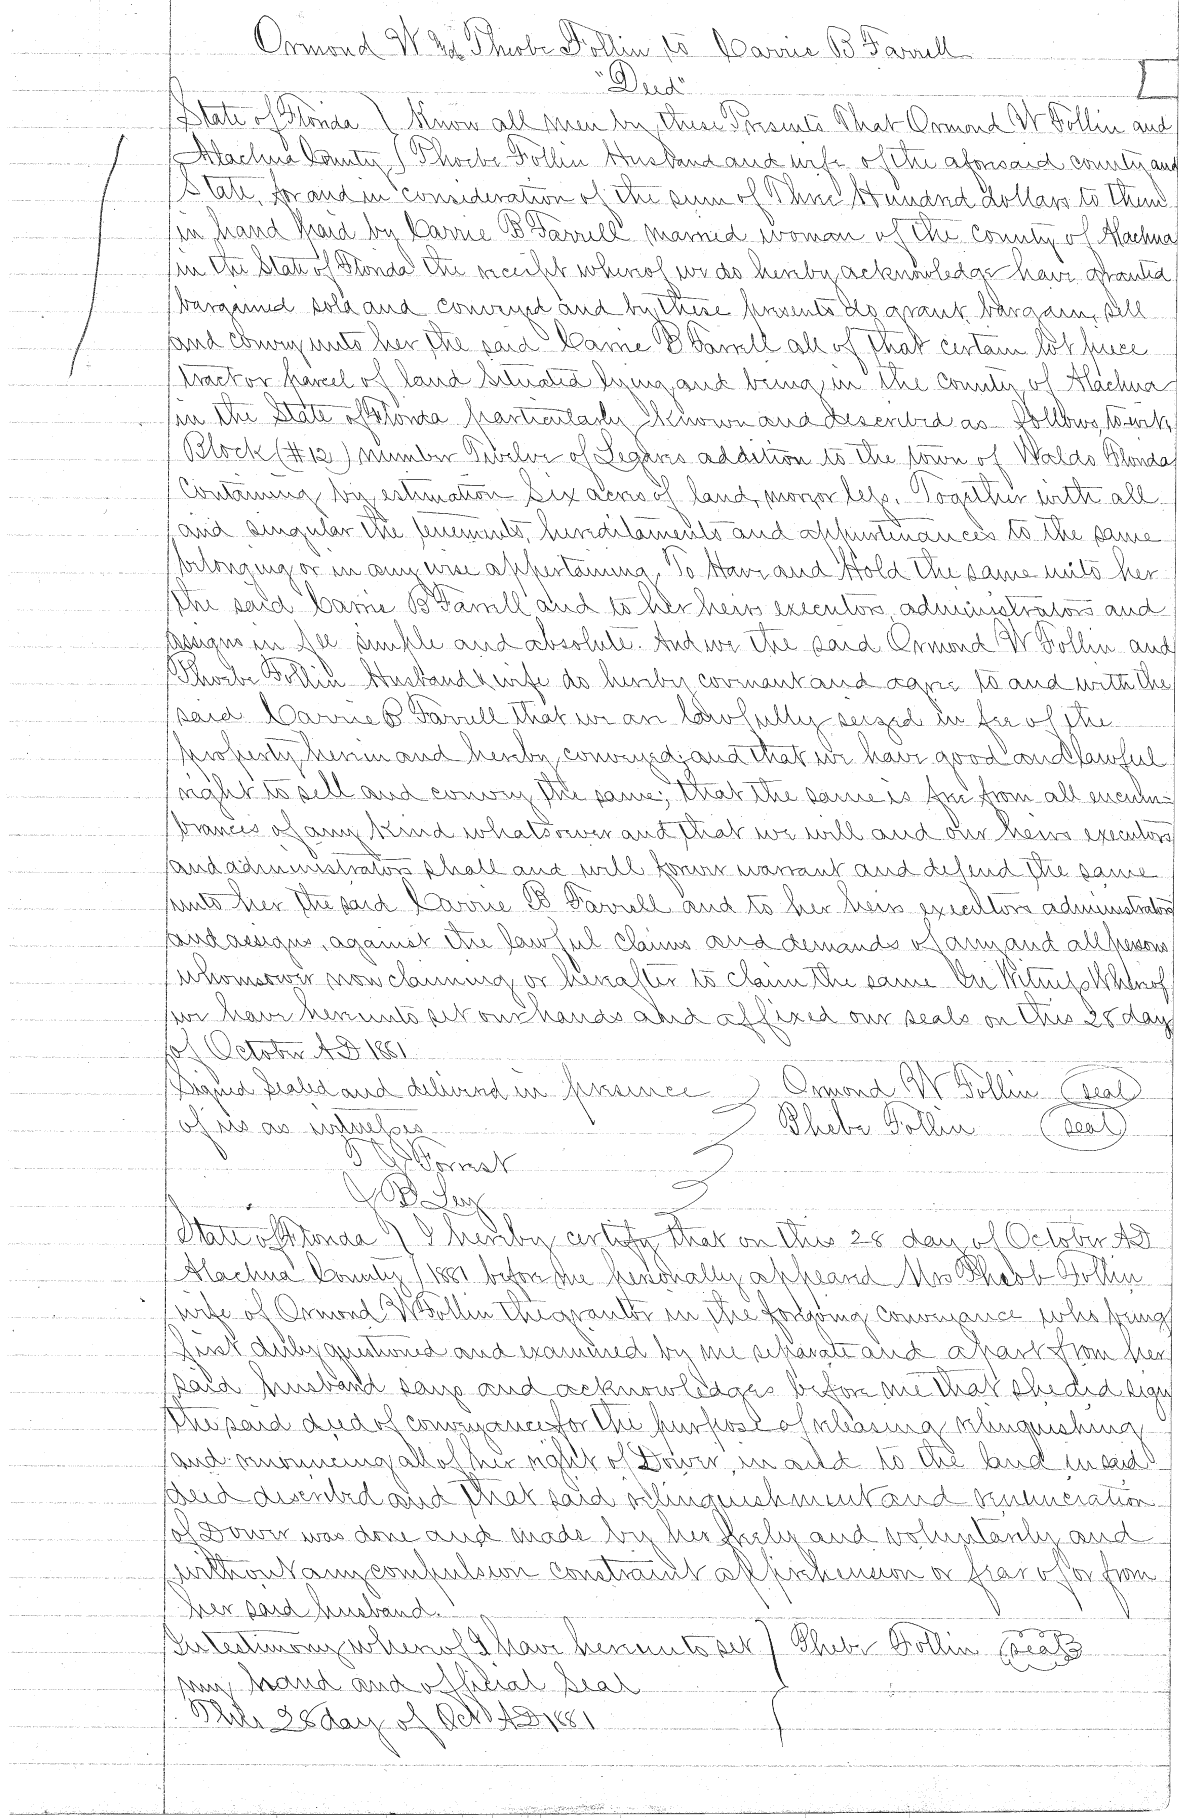 Ormond W and Phoebe Follin to Carrie B Farrell
"Deed"
State of Florida } Know all men by these Presents That Ormond W Follin and
Alachua County } Phoebe Follin Husband and wife of the aforesaid county and
State, for and in consideration of the sum of Three Hundred dollars to them
in hand paid by Carrie B Farrell married woman of the County of Alachua
in the State of Florida the receipt whereof we do hereby acknowledge have granted
bargained sold and conveyed and by these presents do grant, bargain, sell
and convey unto her the said Carrie B Farrell all of that certain lot piece
tract or parcel of land situated lying and being in the County of Alachua
in the State of Florida particularly known and described as follows, to wit,
Block (#12) number Twelve of Legares addition to the town of Waldo Florida
Containing by estimation Six acres of land, more or less. Together with all
and singular the tenements, hereditaments and appurtenances to the same
belonging or in any wise appertaining. To Have and Hold the same unto her
the said Carrie B Farrell and to her heirs executors administrators and
assigns in fee simple and absolute. And we the said Ormond W Follin and
Phoebe Follin Husband & wife do hereby covenant and agree to and with the
said Carrie B Farrell that we are lawfully seized in fee of the
property herein and hereby conveyed; and that we have good and lawful
right to sell and convey the same; that the same is free from all encum=
brances of any kind whatsoever and that we will and our heirs executors
and administrators shall and will forever warrant and defend the same
unto her the said Carrie B Farrell and to her heirs executors administrators
and assigns, against the lawful claims and demands of any and all persons
whomsoever now claiming or hereafter to claim the same In Witness Whereof
we have hereunto set our hands and affixed our seals on this 28 day
of October AD 1881
Signed Sealed and delivered in presence } Ormond W Follin (seal)
of us as witnesses } Phebe Follin (seal)
Forrest
J B Ley
State of Florida } I hereby certify that on this 28 day of October AD
Alachua County } 1881 before me personally appeared Mrs Follin
wife of Ormond W Follin the grantor in the forgoing conveyance who being
first duly questioned and examined by me separate and apart from her
said husband says and acknowledges before me that she did sign
the said deed of conveyance for the purpose of releasing relinquishing
and renouncing all of her right of Dower, in and to the land in said
deed described and that said relinquishment and renunciation
of Dower was done and made by her freely and voluntarily and
without any compulsion constraint apprehension or fear of or from
her said husband.
In testimony whereof I have hereunto set } Phebe Follin (seal)
my hand and official Seal
This 28 day of Oct AD 1881